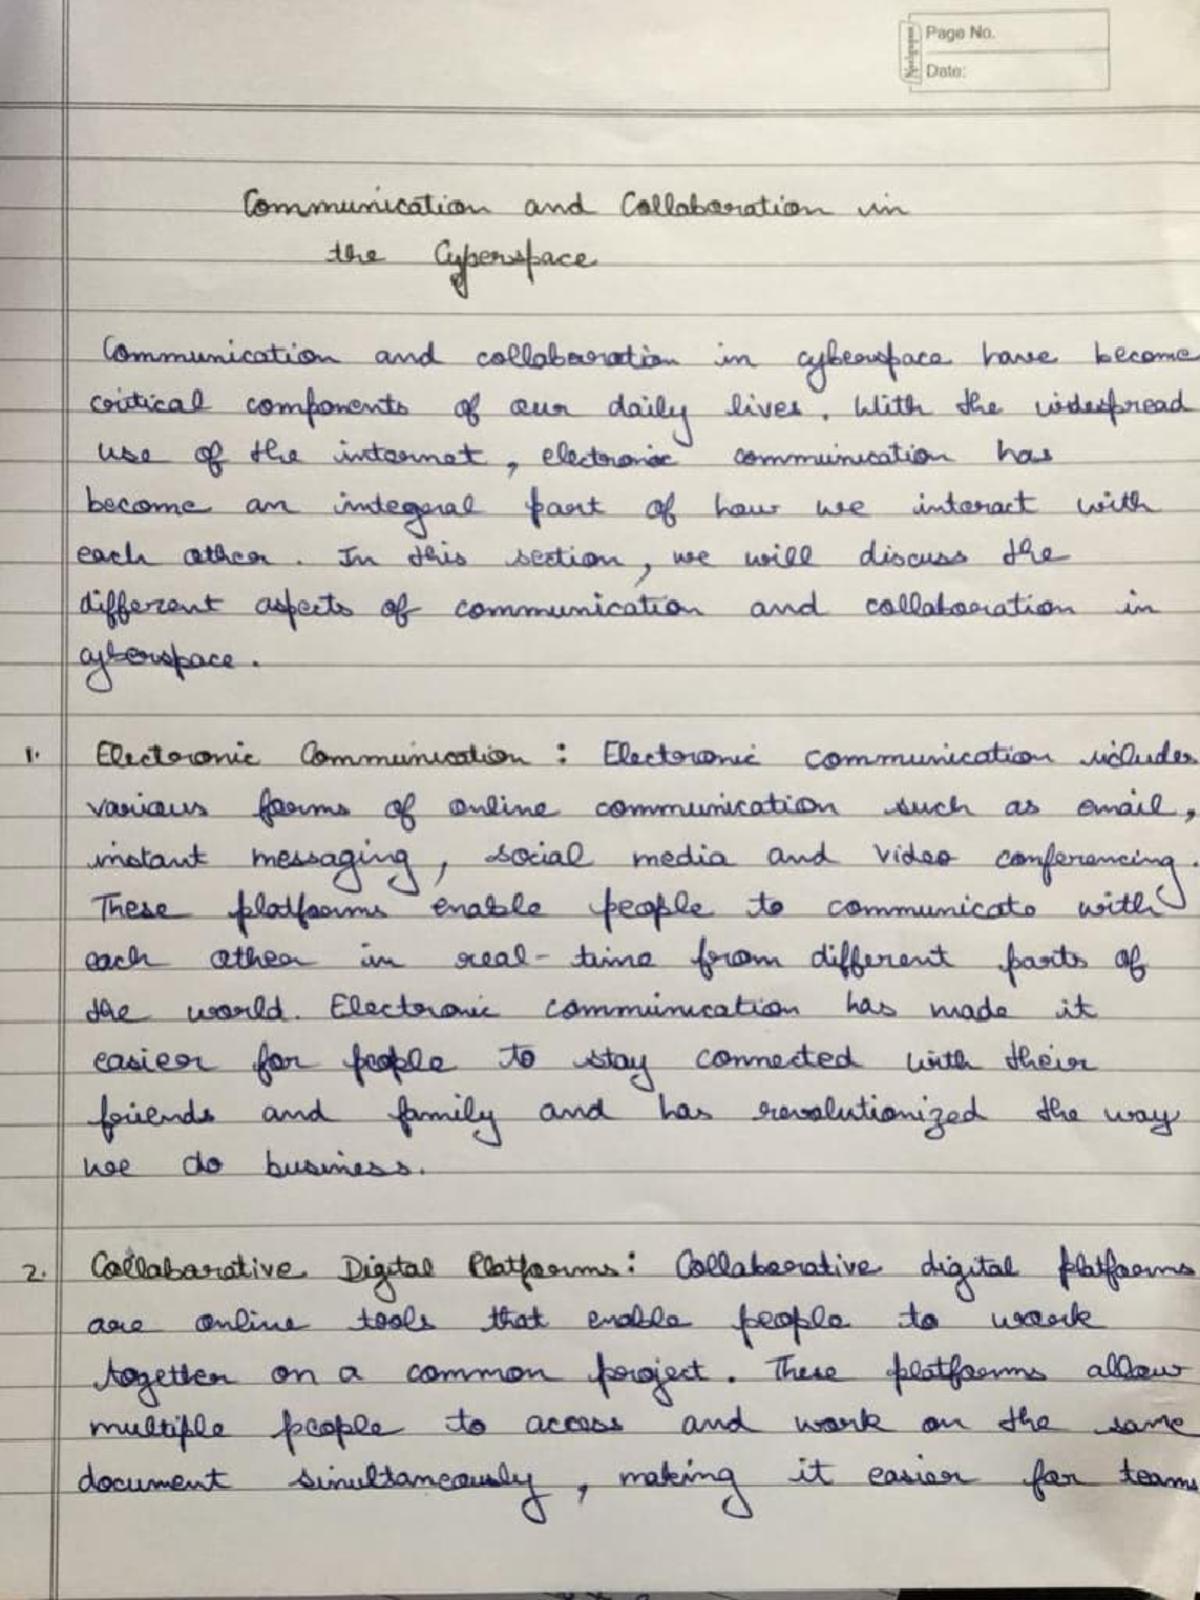 Page No.
Date:
Communication and Collaboration in
the Cyberspace
Communication and collaboration in cyberspace have become
critical components of our daily lives. With the widespread
use of the internet, electronic communication has
become an integral part of how we interact with
each other. In this section, we will discuss the
different aspects of communication and collaboration in
cyberspace.
1. Electronic Communication : Electronic communication includes
various forms of online communication such as email,
instant messaging, social media and video conferencing.
These platforms enable people to communicate with
each other in real-time from different parts of
the world. Electronic communication has made it
easier for people to stay connected with their
friends and family and has revolutionized the way
we do business.
2. Collaborative Digital Platforms: Collaborative digital platforms
are online tools that enable people to work
together on a common project. These platforms allow
multiple people to access and work on the same
document simultaneously, making it easier for teams